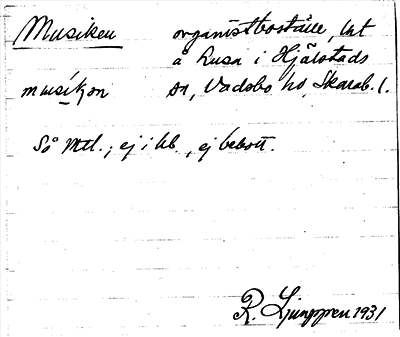 Musiken organistboställe, lht
å Lusa i Hjälstads
musíkən sn, Vadsbo hd, Skarab. l.
Så mtl.; ej i kb., ej bebott.
R. Ljunggren 1931